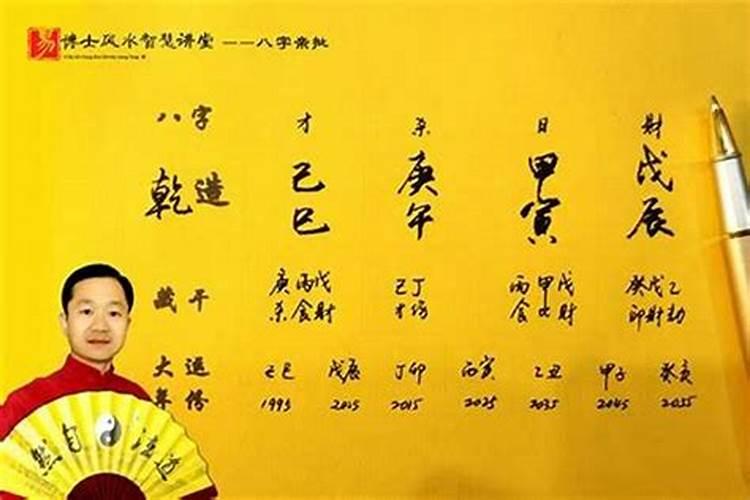 易 博士风水智慧讲堂 ——八字亲批
八字 才 杀 日 财
乾造 己 庚 甲 戊
巳 午 寅 辰
藏干 庚丙戊 己丁 丙甲戊 癸戊乙
杀食财 才伤 食比财 印财劫
大运 己巳 戊辰 丁卯 丙寅 乙丑 甲子 癸亥
年份 1995 2005 2015 2025 2035 2045 2055
道法自然